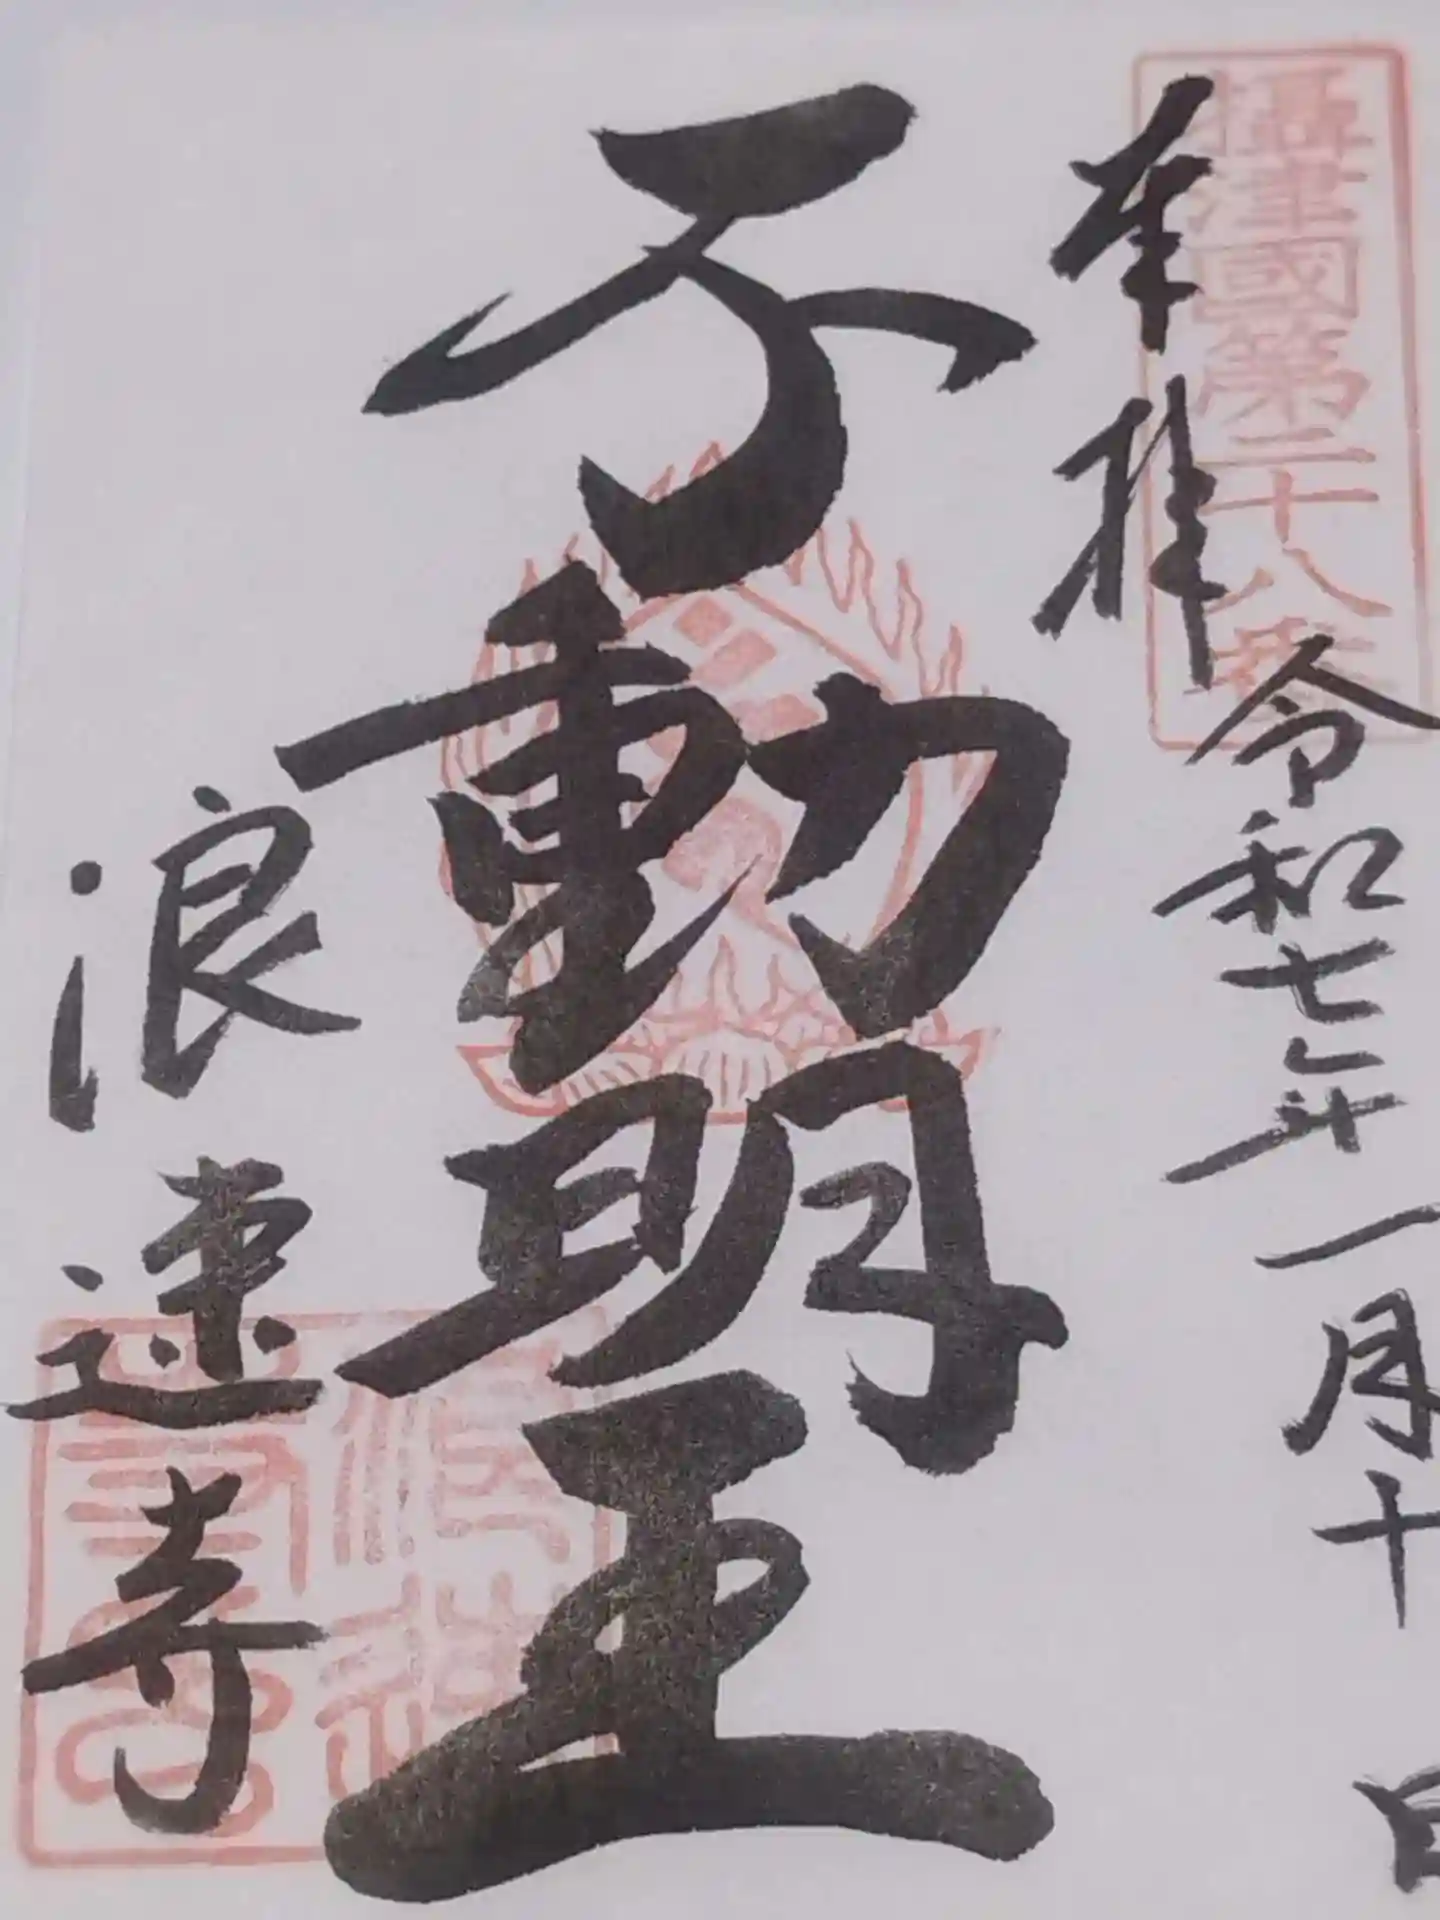 攝津國第二十八番
奉拝
令和七年一月十日
不動明王
浪速寺